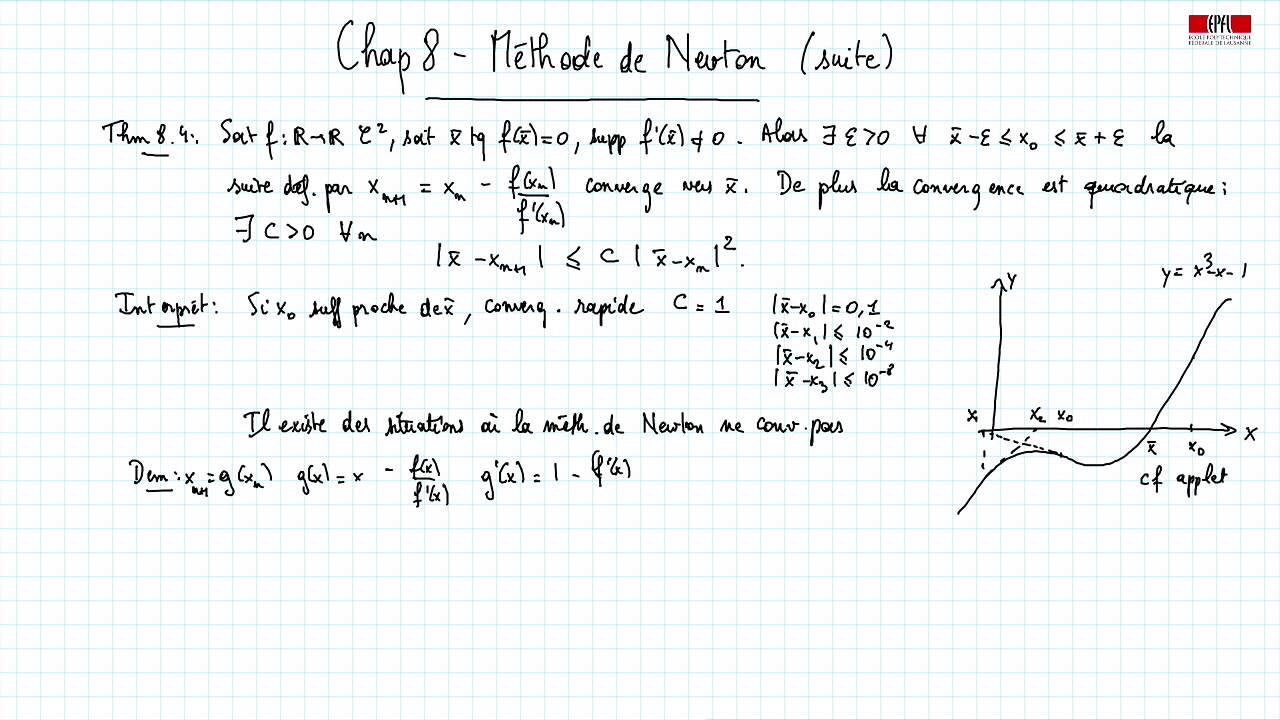 EPFL
ÉCOLE POLYTECHNIQUE
FÉDÉRALE DE LAUSANNE
Chap 8 - Méthode de Newton (suite)
Thm 8.4: Soit f: ℝ→ℝ C², soit x̄ tq f(x̄)=0, supp f'(x̄) ≠ 0. Alors ∃ ε>0 ∀ x̄-ε ≤ x₀ ≤ x̄+ε la
suite déf. par xₙ₊₁ = xₙ - f(xₙ)/f'(xₙ) converge vers x̄. De plus la convergence est quadratique:
∃ C>0 ∀n
|x̄ - xₙ₊₁| ≤ C |x̄ - xₙ|².
Interprét: Si x₀ suff proche de x̄, converg. rapide C = 1 |x̄-x₀| = 0,1
|x̄-x₁| ≤ 10⁻²
|x̄-x₂| ≤ 10⁻⁴
|x̄-x₃| ≤ 10⁻⁸
y = x³-x-1
y
x₁ x₂ x₀
x
x̄ x₀
cf applet
Il existe des situations où la méth. de Newton ne conv. pas
Dem: xₙ₊₁ = g(xₙ) g(x) = x - f(x)/f'(x) g'(x) = 1 - f'(x)